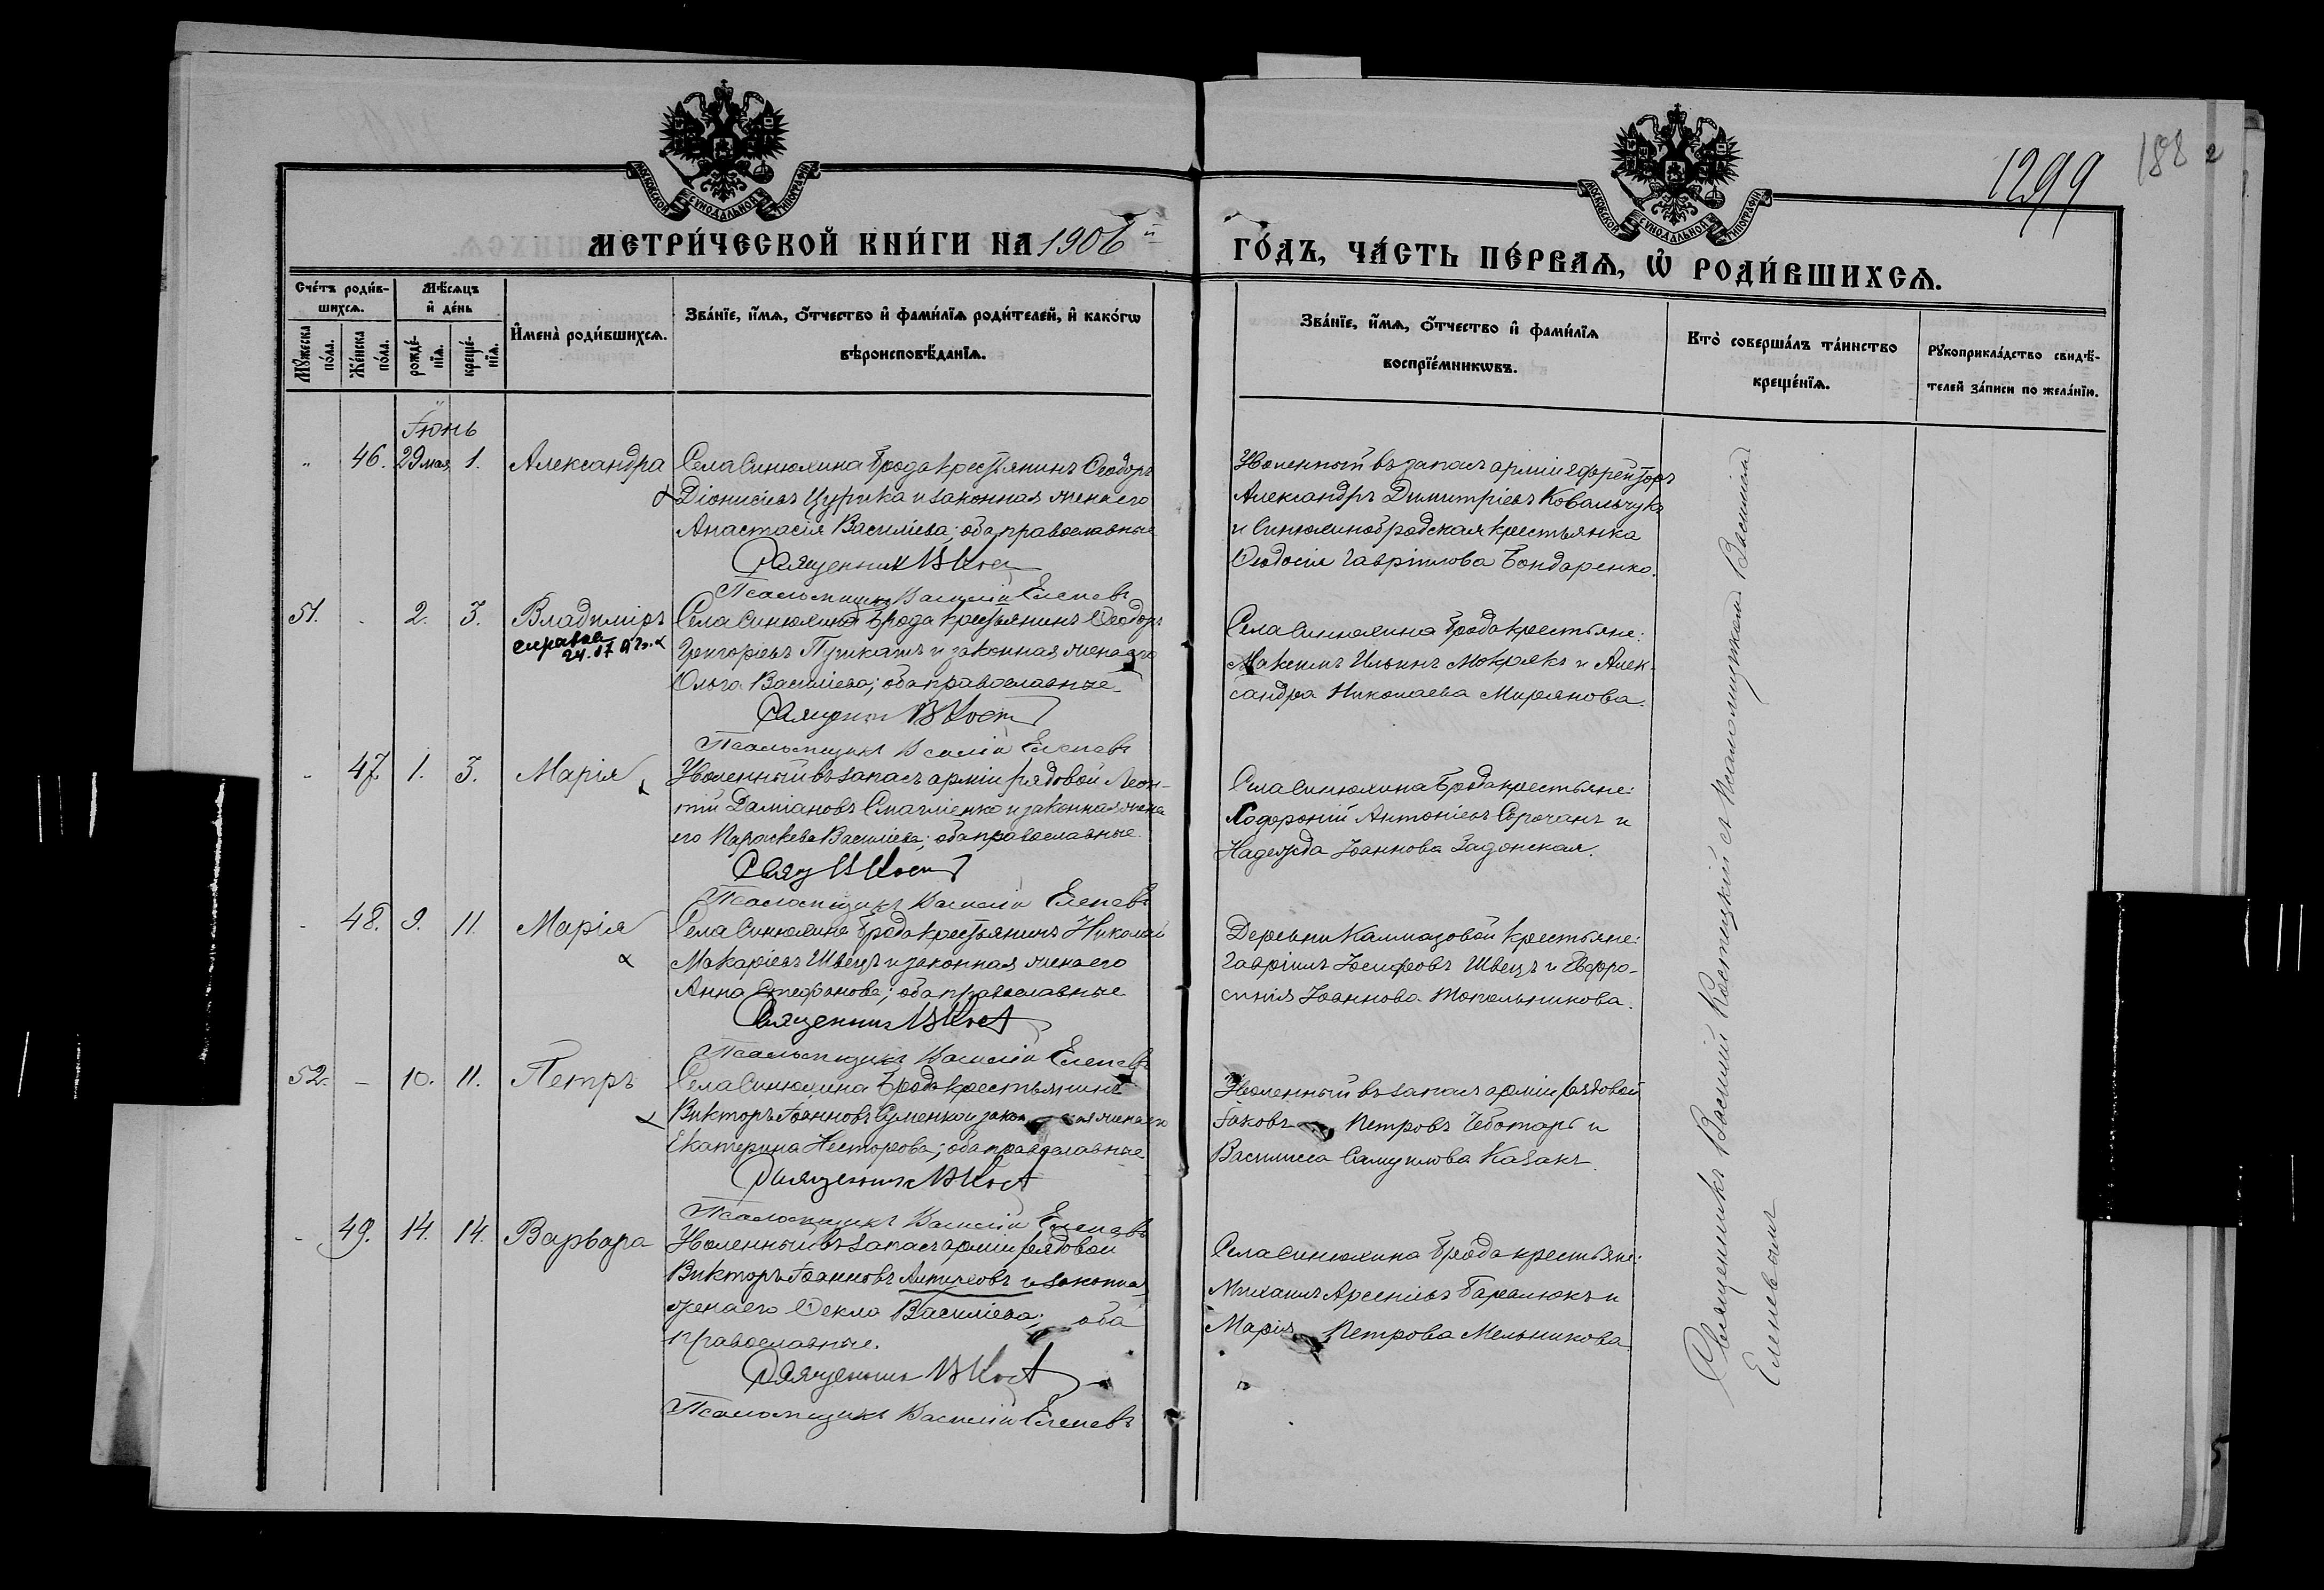 1299
188
2
МОСКОВСКОЙ СУНОДАЛЬНОЙ ТИПОГРАФІИ
МОСКОВСКОЙ СУНОДАЛЬНОЙ ТИПОГРАФІИ
МЕТРИ́ЧЕСКОЙ КНИ́ГИ НА 1906й ГО́ДЪ, ЧА́СТЬ ПЕ́РВАѦ, Ѡ҆ РОДИ́ВШИХСѦ.
Сче́тъ роди́в-
шихсѧ.
Мꙋ́жеска по́ла.
Же́нска по́ла.
Мѣ́сѧцъ
и҆ де́нь
рожде́-
нїѧ.
креще́-
нїѧ.
И҆мена̀ роди́вшихсѧ.
Зва́нїе, и҆́мѧ, ѻ҆́тчество и҆ фами́лїѧ роди́телей, и҆ како́гѡ
вѣроисповѣ́данїѧ.
Зва́нїе, и҆́мѧ, ѻ҆́тчество и҆ фами́лїѧ
воспрїе́мникѡвъ.
Кто̀ соверша́лъ та́инство
креще́нїѧ.
Рꙋкоприкла́дство свидѣ́-
телей за́писи по жела́нїю.
Іюнь
" 46. 29 мая 1. Александра
Села Синюхина Брода крестьянинъ Ѳеодоръ
Діонисіевъ Цурика и законная жена его
Анастасія Василіева; оба православные
Священник В Кост
Псаломщикъ Василій Еленевъ
Уволенный въ запасъ арміи ефрейторъ
Александръ Димитріевъ Ковальчукъ
и Синюхинобродская крестьянка
Ѳеодосія Гавріилова Бондаренко.
51. 2. 3. Владиміръ
справка
24.07
Села Синюхина Брода крестьянинъ Ѳеодоръ
Григоріевъ Пушкашъ и законная жена его
Ольга Василіева; оба православные
Священник В Кост
Псаломщикъ Василій Еленевъ
Села Синюхина Брода крестьяне:
Максимъ Ильинъ Мокрякъ и Алек-
сандра Николаева Мирянова.
47. 1. 3. Марія
Уволенный въ запасъ арміи рядовой Леон-
тій Даміановъ и законная жена
его Параскева Василіева; оба православные
Свящ В Кост
Псаломщикъ Василій Еленевъ
Села Синюхина Брода крестьяне:
Антоніевъ Сорочанъ и
Надежда Іоаннова Задонская.
48. 9. 11. Марія
Села Синюхина Брода крестьянинъ Николай
Макаріевъ Швецъ и законная жена его
Анна Стефанова; оба православные
Священник В Кост
Псаломщикъ Василій Еленевъ
Деревни Калмазовой крестьяне:
Гавріилъ Іосифовъ Швецъ и Евфро-
синія Іоаннова Топольникова.
52. — 10. 11. Петръ
Села Синюхина Брода крестьянинъ
Викторъ Іоанновъ Суменко и законная жена его
Екатерина Несторова; оба православные
Священник В Кост
Псаломщикъ Василій Еленевъ
Уволенный въ запасъ арміи рядовой
Іаковъ Петровъ Чеботарь и
Василисса Самуилова Казакъ.
49. 14. 14. Варвара
Уволенный въ запасъ арміи рядовой
Викторъ Іоанновъ и законная
жена его Ѳекла Василіева; оба
православные.
Священник В Кост
Псаломщикъ Василій Еленевъ
Села Синюхина Брода крестьяне:
Михаилъ Арсеніевъ и
Марія Петрова Мельникова.
Священникъ Василій Костецкій съ Псаломщикомъ Василіемъ
Еленевымъ